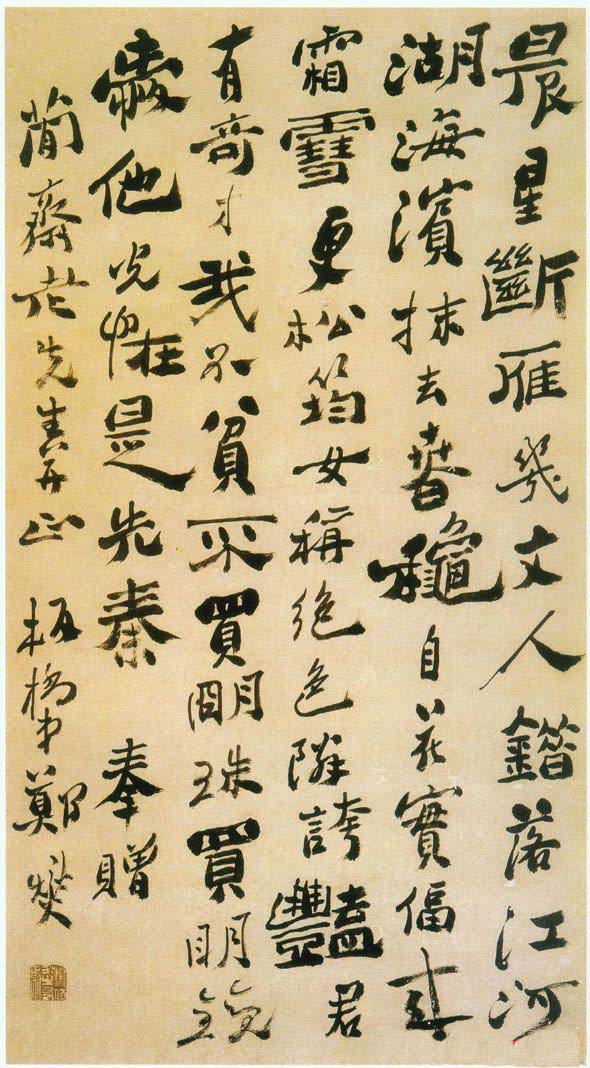 晨星斷雁幾文人錯落江河
湖海濱抹去春龝自花實偪來
霜雪更松筠女稱絕色鄰誇豔君
有奇才我不貧不買明珠買明鏡
愛他光怪是先秦 奉贈
簡齋老先生正 板橋弟鄭燮